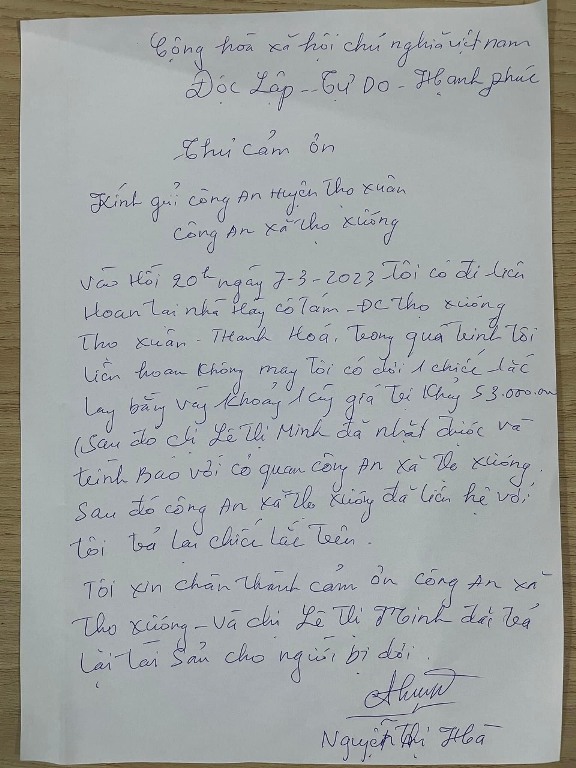 Cộng hòa xã hội chủ nghĩa việt nam
Độc Lập - Tự Do - Hạnh phúc
Thư cảm ơn
Kính gửi công An Huyện Thọ Xuân
Công An xã thọ xương
Vào Hồi 20h ngày 7-3-2023 Tôi có đi liên
Hoan tại nhà Hàng cô Tám - ĐC thọ xương
Thọ xuân - Thanh Hoá, trong quá trình tôi
liên hoan không may tôi có rơi 1 chiếc lắc
tay bằng vàng khoảng 1 cây giá trị khoảng 53.000.000
(Sau đó chị Lê Thị Minh đã nhặt được và
trình Báo với cơ quan công An xã thọ xương.
Sau đó công An xã thọ xương đã liên hệ với
tôi trả lại chiếc lắc trên.
Tôi xin chân thành cảm ơn công An xã
Thọ xương - Và chị Lê Thị Minh đã trả
lại tài sản cho người bị rơi.
Nguyễn Thị Hà